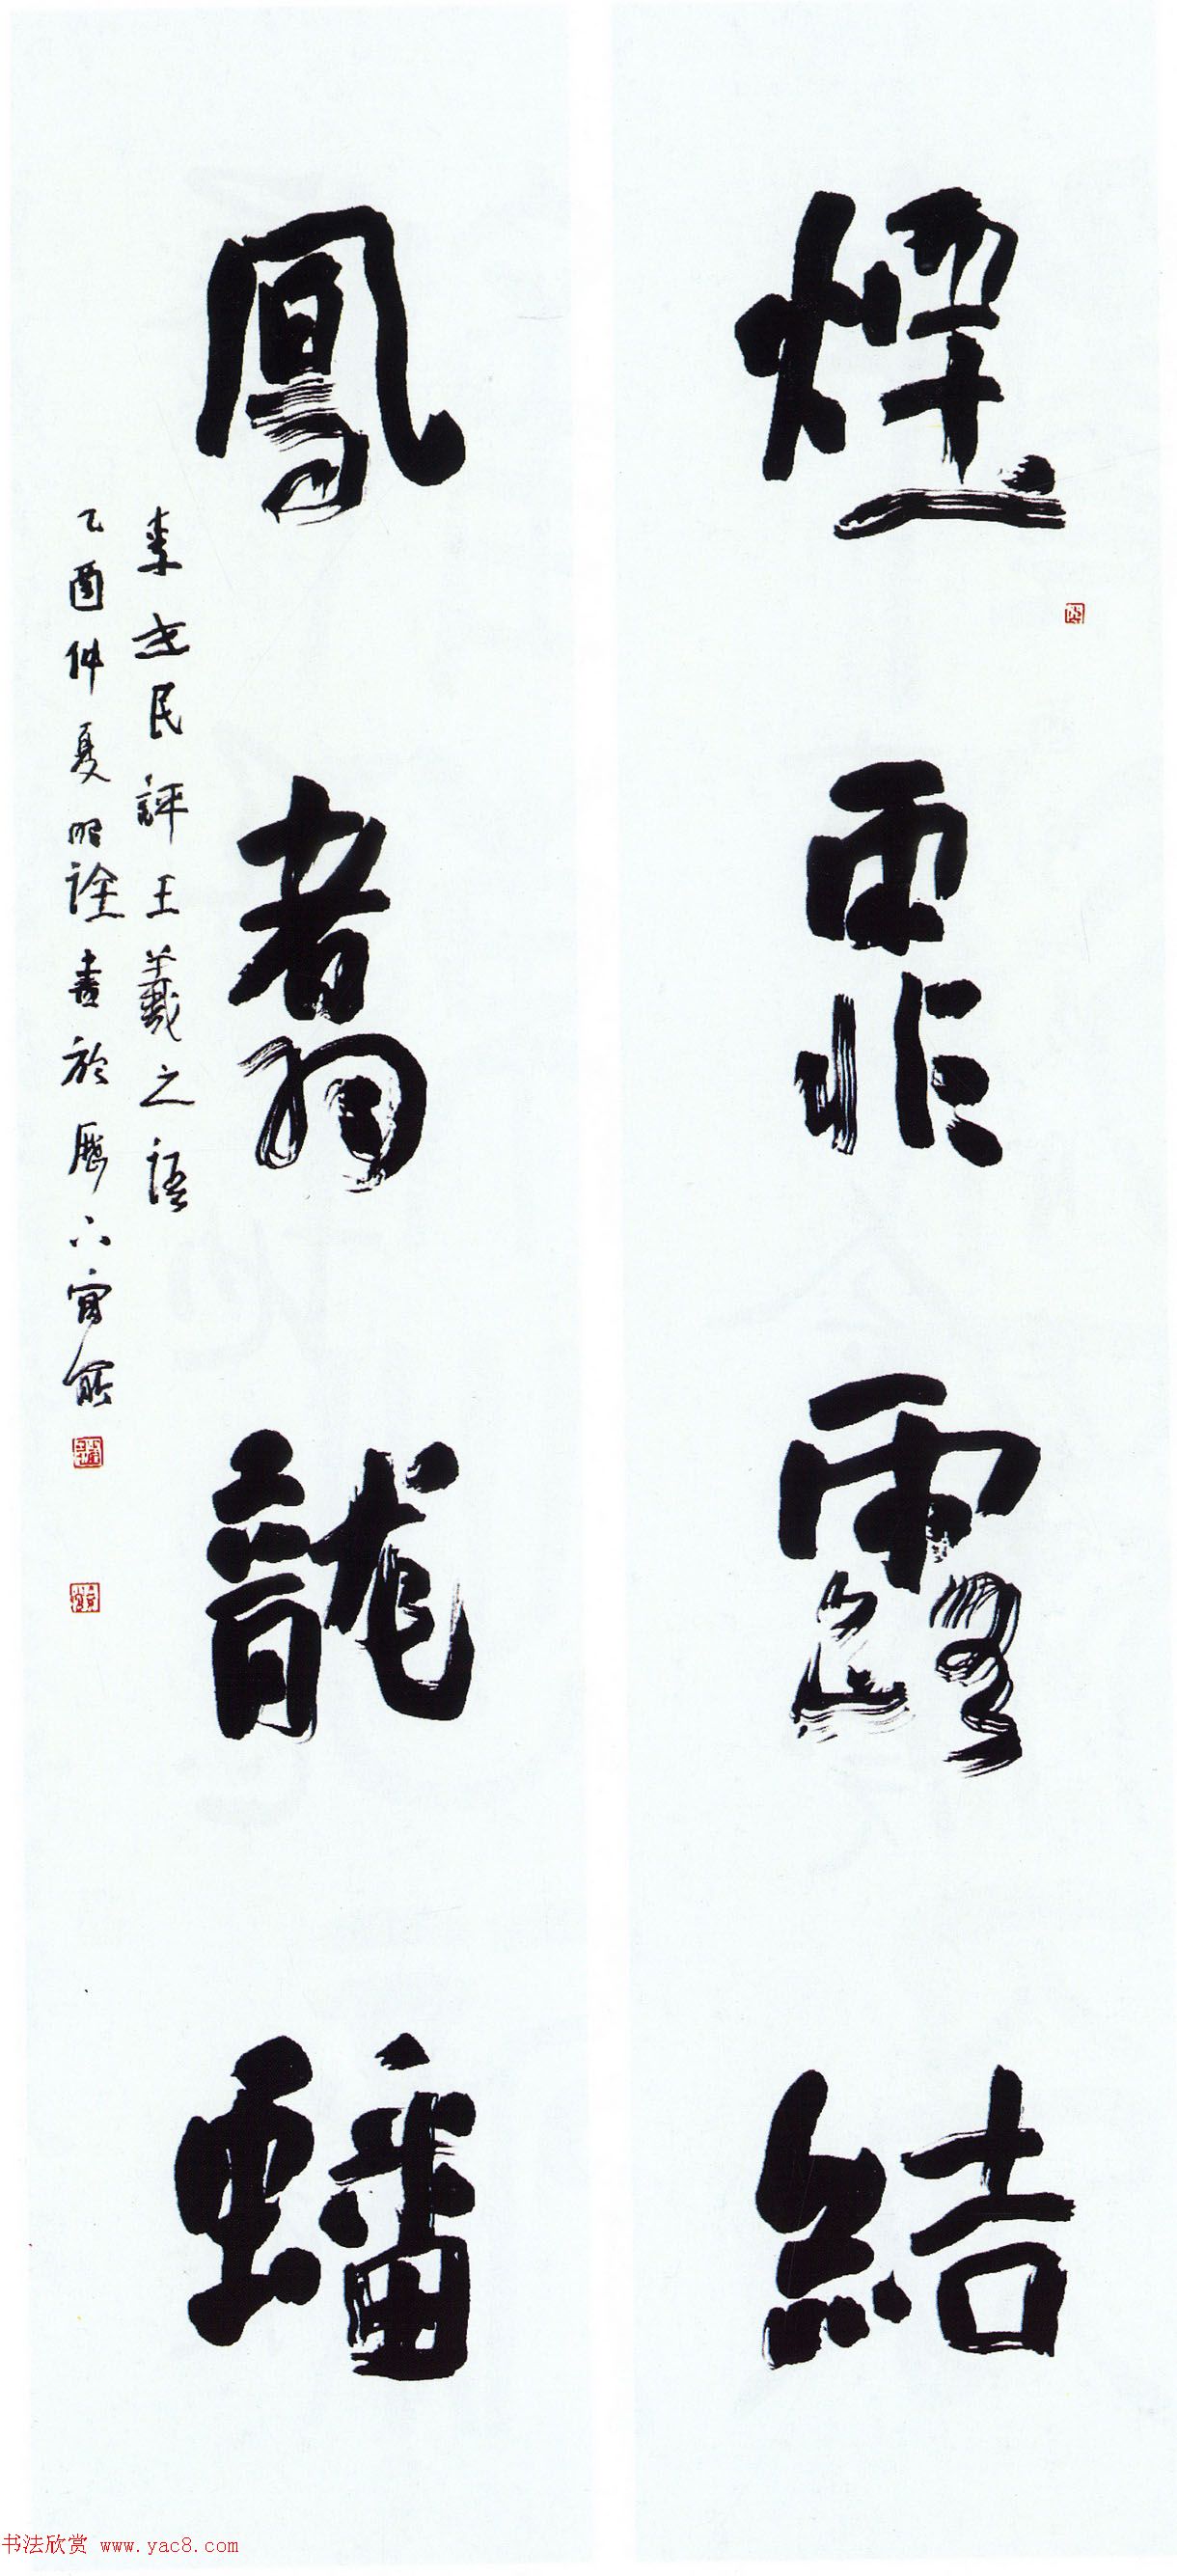 煙霏露結
鳳翥龍蟠
李世民評王羲之語
乙酉仲夏明詮書於歷下
书法欣赏 www.yac8.com